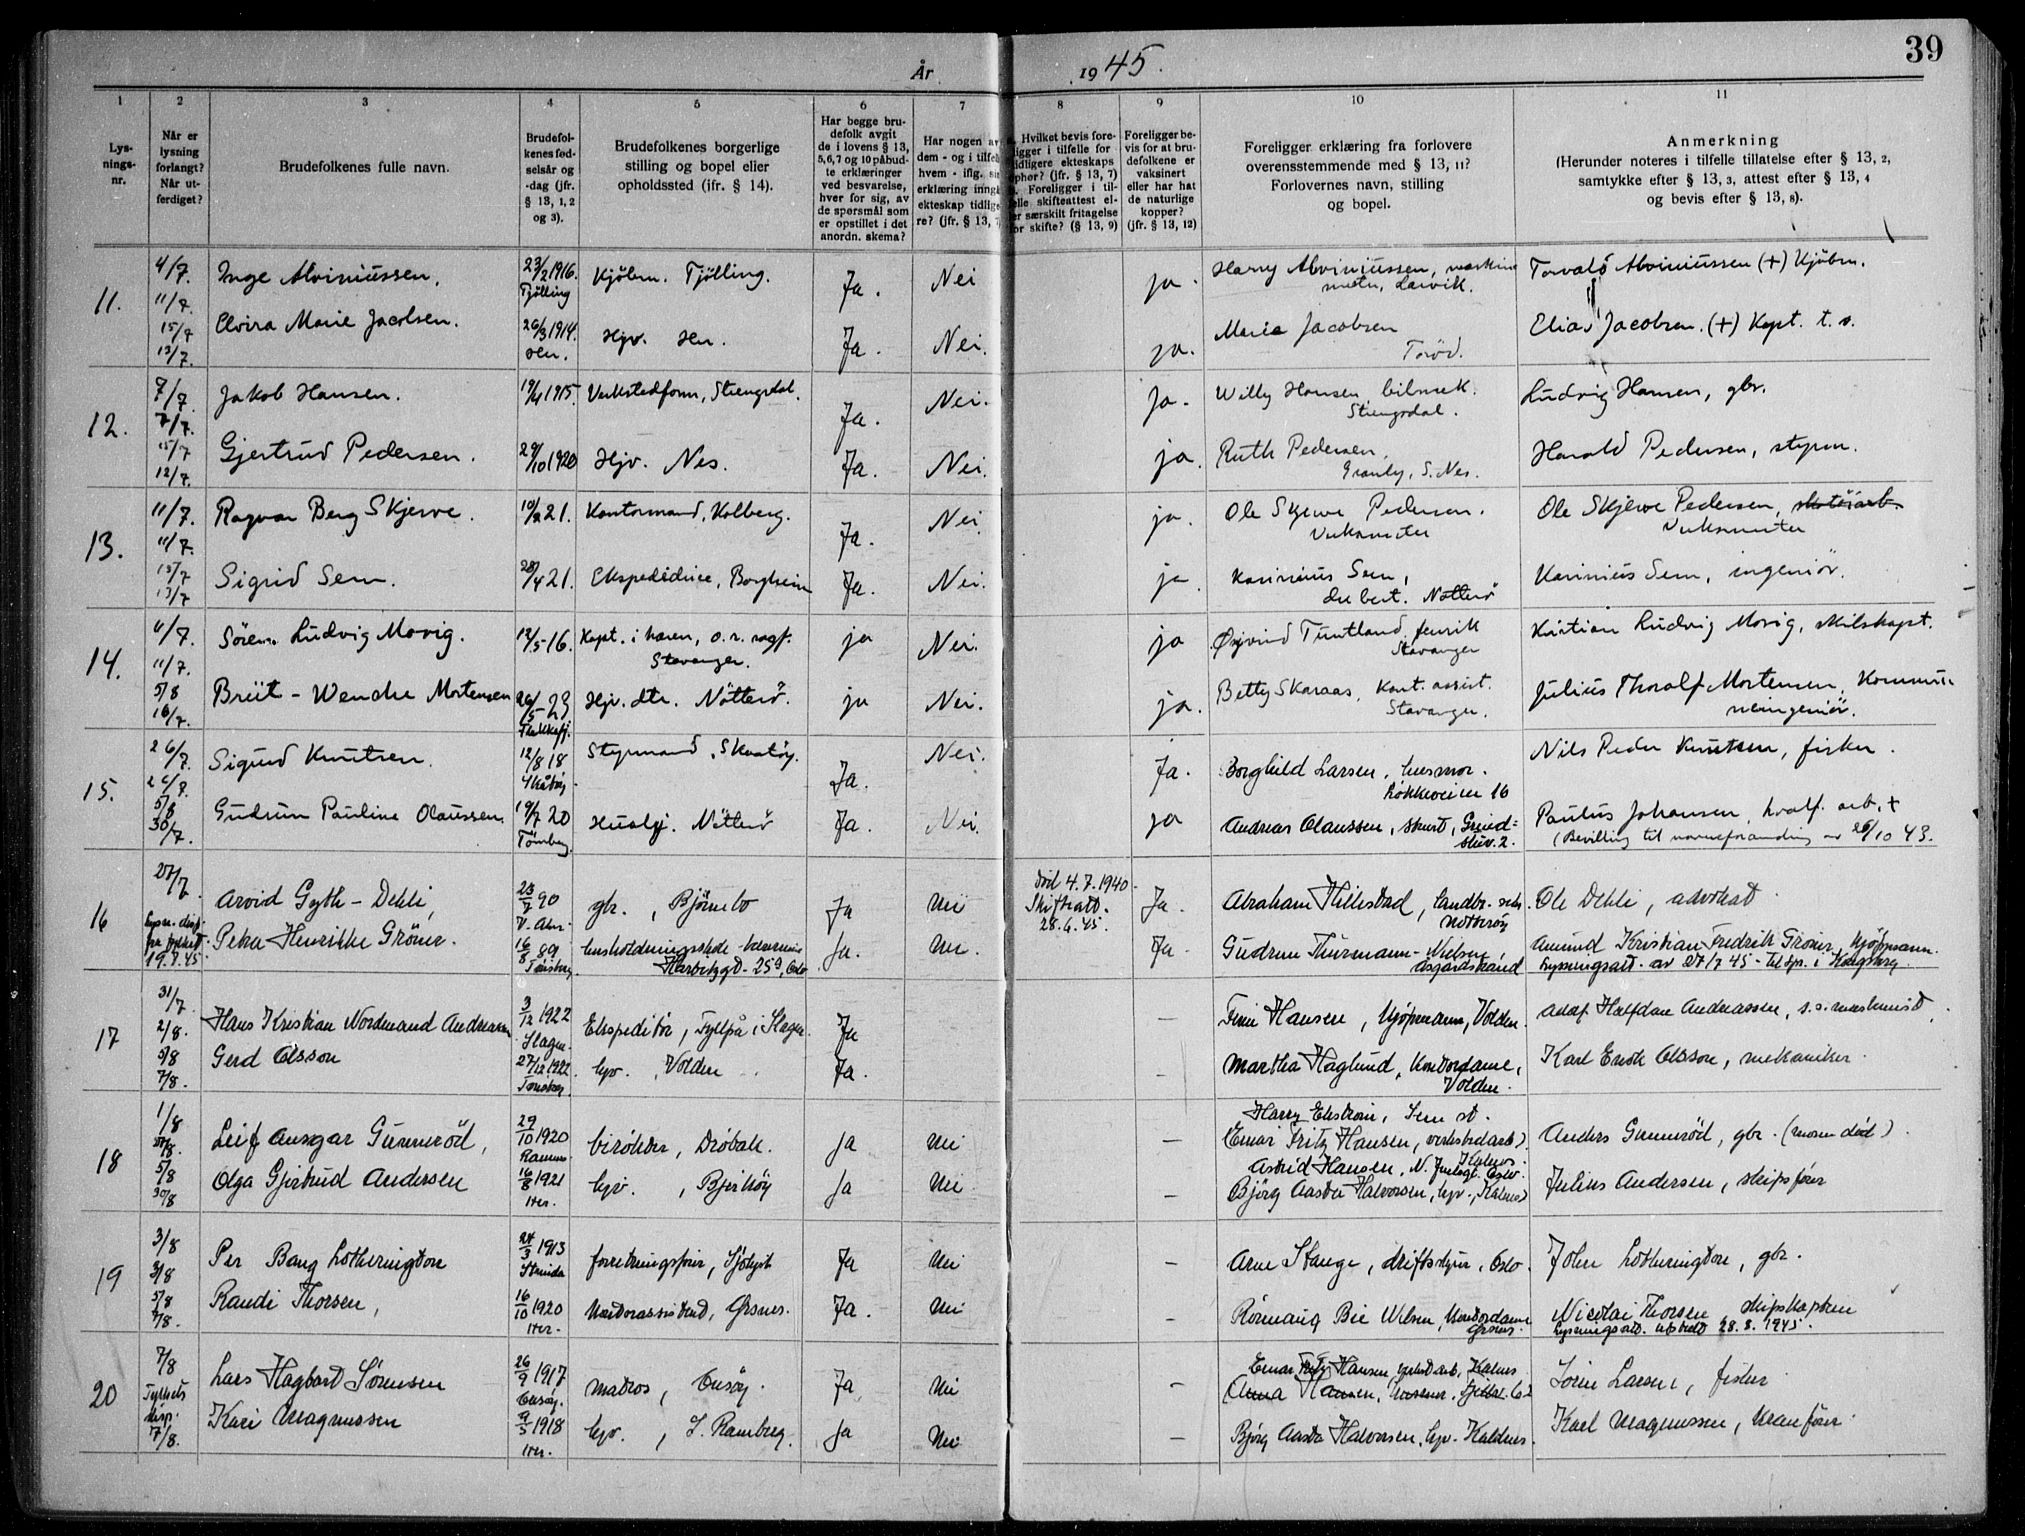 39
År 1945.
1 2 3 4 5 6 7 8 9 10 11
Lysningsnr.
Når er lysning forlangt? Når utferdiget?
Brudefolkenes fulle navn.
Brudefolkenes fødselsår og -dag (jfr. § 13, 1, 2 og 3).
Brudefolkenes borgerlige stilling og bopel eller opholdssted (ifr. § 14).
Har begge brudefolk avgitt de i lovens § 13, 5, 6, 7 og 10 påbudte erklæringer ved besvarelse, hver for sig, av de spørsmål som er opstillet i det anordn. skema?
Har nogen av dem - og i tilfelle hvem - iflg. sin erklæring inngått ekteskap tidligere? (jfr. § 13, 7)
Hvilket bevis foreligger i tilfelle for tidligere ekteskaps ophør? (jfr. § 13, 7)
Foreligger i tilfelle skifteattest eller særskilt fritagelse for skifte? (§ 13, 9)
Foreligger bevis for at brudefolkene er vaksinert eller har hat de naturlige kopper? (jfr. § 13, 12)
Foreligger erklæring fra forlovere overensstemmende med § 13, 11? Forlovernes navn, stilling og bopel.
Anmerkning (Herunder noteres i tilfelle tillatelse efter § 13, 2, samtykke efter § 13, 3, attest efter § 13, 4 og bevis efter § 13, 8).
11. 4/7. 11/7. Inge Alviniussen. 23/2 1916. Tjölling Kjöbm. Tjölling. Ja. Nei ja. Harry Alviniussen, Larvik. Torvald Alviniussen (+) Kjöbm.
15/7 13/7. Elvira Marie Jacobsen. 26/3 1914. Hjv. Ja. Nei. ja. Marie Jacobsen Torød. Elias Jacobsen. (+) Kapt. t. s.
12. 7/7. 7/7. Jakob Hansen. 19/4 1915. Verkstedform, Strengsdal. Ja. Nei. Ja. Willy Hansen, bilmek. Strengsdal. Ludvig Hansen, gbr.
15/7 12/7. Gjertrud Pedersen. 29/10 1920 Hjv. Nes. Ja. Nei. ja. Ruth Pedersen, Granly, S. Nes. Harald Pedersen, styrm.
13. 11/7. 11/7. Ragnar Berg Skjerve. 10/2 21. Kontormand, Kolberg. Ja. Nei. ja. Ole Skjerve Pedersen. Verksmester Ole Skjerve Pedersen, skotöiarb. Verksmester
15/7 13/7 Sigrid Sem. 28/4 21. Ekspeditrice, Borgheim Ja. Nei. ja Karinius Sem, Nötterö Karinius Sem, ingeniör.
14. 11/7. 11/7. Sören Ludvig Movig. 12/5-16. Kapt. i hæren, Stavanger. ja Nei. ja Øyvind Tuntland, fenrik Stavanger Kristian Ludvig Movig, skilskapt.
5/8 16/7. Britt-Wenche Mortensen 26/5-23 Hjv. dtr. Nötterö. ja Nei. ja. Betty Skaraas, Kont. assist. Stavanger. Julius Thoralf Mortensen, Kommuneingeniör.
15. 26/7. 26/7. Sigurd Knutsen. 12/8 18 Styrmand, Skåtöy. Ja. Nei. Ja. Borghild Larsen, husmor. Løkkeveien 16 Nils Peder Knutsen, fisker.
5/8 30/7. Gudrun Pauline Olaussen. 19/7 20 Tønsberg. Hushj. Nötterö Ja. Nei. ja Andreas Olaussen, 2. Paulus Johansen, hvalf. arb. +
(Bevilling til navneforandring av 26/10 43.
16 27/7. Arvid Gyth-Dehli, 23/7 90 gbr., Bjørnebo Ja Nei Skifteatt. 28.6.45. 4.7.1940. Ja. Abraham Hillestad, Nøtterøy Ole Dehli, advokat
19.7.45. Petra Henrikke Gröner. 16/8 89 Tønsberg Oslo Ja. Nei. Ja. Gudrun Thurmann-Nielsen Åsgårdstrand Amund Kristian Fredrik Grøner, kjøpmann.
Lysningsatt. av 27/7 45
17 31/7 2/8. Hans Kristian Nordmand Andreassen 3/12 1922 Slagen. Ekspeditör, i Slagen. Ja – Finn Hansen, kjøpmann, Volden. Adolf Halfdan Andreassen, maskinist
5/8 7/8. Gerd Olsson 27/12 1922 Tønsberg hjv. Volden Ja. – Martha Haglund, kontordame, Volden. Karl Erich Olsson, mekaniker.
18 1/8 Leif Ansgar Gunnerød, 29/10 1920 Ramnes birøkter, Drøbak. ja Nei – Harry Ekstrøm, Sem st. (Einar Fritz Hansen, verkstedarb.) Kalnes. Anders Gunnerød, gbr. (moren død).
5/8 30/8 Olga Gjertrud Andersen 16/8 1921 Her. hjv., Bjerkøy Ja Nei – Astrid Hansen, Oslo. Bjørg Aasta Halvorsen, hjv., Kalnes) Julius Andersen, skipsfører
19 3/8 3/8 Per Bang Lotherington 24/3 1913 Strinda forretningsfører, Sjølyst Ja Nei – Arne Stange, driftsstyrer, Oslo. John Lotherington, gbr.
5/8 7/8. Randi Thorsen, 16/10 1920 Her. Kontorassistent, Ørsnes. Ja. Nei – Rönnaug Bie Nilsen, Kontordame Ørsnes. Nicolai Thorsen, skipskaptein
Lysningsatt. utstedt 28.8.1945.
20 7/8 Lars Hagbart Sörensen 26/9 1917 matros, Ja. Nei – Einar Fritz Hansen, verkstedarb. Kalnes Anna Hansen, husmor. Sörin Larsen, fisker
7/8. Kari Magnussen 9/3 1918 Her. hjv., S. Ramberg. Ja Nei – Bjørg Aasta Halvorsen, hjv. Kaldnes. Karl Magnussen, kranfører.